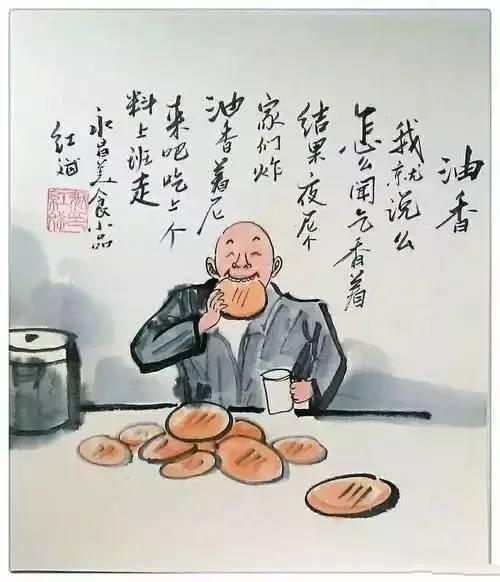 油香
我就说么
怎么闻气香着
结果夜尼个
家们炸
油香着尼
来吧吃上个
料上班走
永昌美食小品
红斌